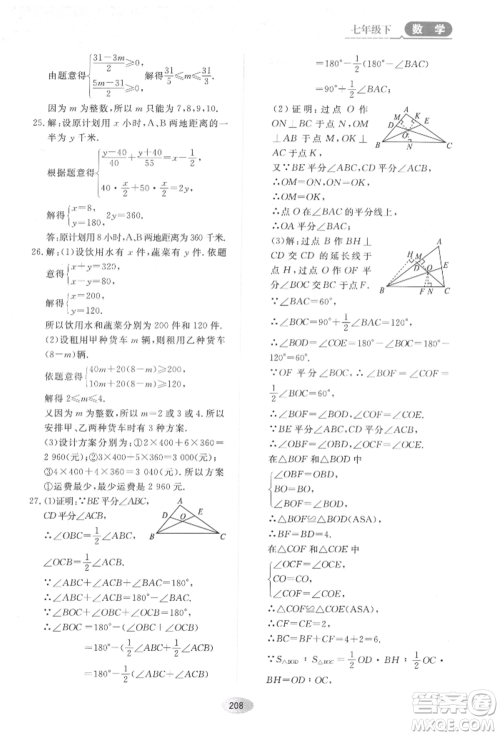 七年级下 数学
由题意得{31-3m/5≥2, 5m-31/2≥2} 解得 31/5≤m≤31/3
因为 m 为整数，所以 m 为 7,8,9,10.
25.解：设原计划用 x 小时，A、B 两地距离的一
半为 y 千米.
根据题意得{y/40+y/40+y/50=x, 40·x/2+50·x/2=2y,
解得{x=8, y=180. 2y=360.
答：原计划用 8 小时，AB 两地距离为 360 千米.
26.解：(1)设饮用水有 x 件，蔬菜有 y 件.依题
意得{x+y=320, x-y=80.
解得{x=200, y=120.
所以饮用水和蔬菜分别为 200 件和 120 件.
(2)设租用甲种货车 m 辆，则租用乙种货车
(8-m)辆.
依题意得{40m+20(8-m)≥200, 10m+20(8-m)≥120.
解得 2≤m≤4.
又因为 m 为整数，所以 m=2 或 3 或 4.所以
安排甲、乙两种货车时有 3 种方案.
(3)设计方案分别为：①2×400+6×360=
2 960(元)；②3×400+5×360=3 000(元)；
③4×400+4×360=3 040(元).所以方案
①运费最少，最少运费是 2 960 元.
27.(1)证明：∵BE 平分∠ABC,
CD 平分∠ACB,
∴∠OBC=1/2∠ABC,
∠OCB=1/2∠ACB.
∵∠ABC+∠ACB+∠BAC=180°,
∴∠ABC+∠ACB=180°-∠BAC.
∵∠OBC+∠OCB+∠BOC=180°,
∴∠BOC=180°-(∠OBC+∠OCB)
=180°-(1/2∠ABC+1/2∠ACB)
=180°-1/2(∠ABC+∠ACB)
=180°-1/2(180°-∠BAC)
=90°+1/2∠BAC.
(2)证明：过点 O 作
ON⊥BC 于 N,OM⊥
AB 于 M,OF⊥AC 于 F.
又∵BE 平分∠ABC,
∴OM=ON.
又∵CD 平分∠ACB,
∴OF=ON,∴OM=OF.
∴点 O 在∠BAC 的平分线上,
∴OA 平分∠BAC.
(3)解：过点 B 作 BH⊥
CD 交 CD 的延长线于
点 H,过点 O 作 OF 平分
∠BOC 交 BC 于点 F.
∵∠BAC=60°,
∴∠BOC=90°+1/2∠BAC=120°,
∴∠BOD=∠COE=180°-∠BOC=60°.
∵OF 平分∠BOC,
∴∠BOF=∠COF=1/2∠BOC=60°,
∴∠BOF=∠BOD,∠COE=∠COF.
在△BOF 和△BOD 中
{∠OBF=∠OBD, BO=BO, ∠BOF=∠BOD,
∴△BOF≌△BOD(ASA),
∴BF=BD.
在△COF 和△COE 中
{∠OCF=∠OCE, CO=CO, ∠COF=∠COE,
∴△COF≌△COE(ASA),
∴CF=CE.
∵S△BOD=1/2OD·BH=1/2OD·kOD,
∴BH=kOD,
208